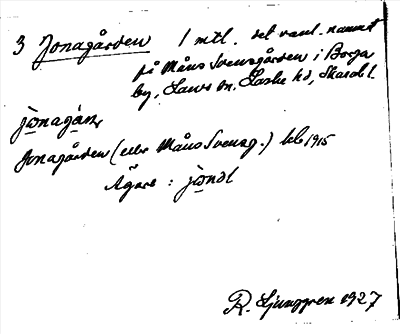 3 Jonagården 1 mtl. det vanl. namnet
på Måns Svensgården i Borga
by, Lavs sn. Laske hd, Skarab l.
jonagárn
Jonagården (eller Måns Svensg.) kb 1915
Ägare : jonál
R. Ljunggren 1927